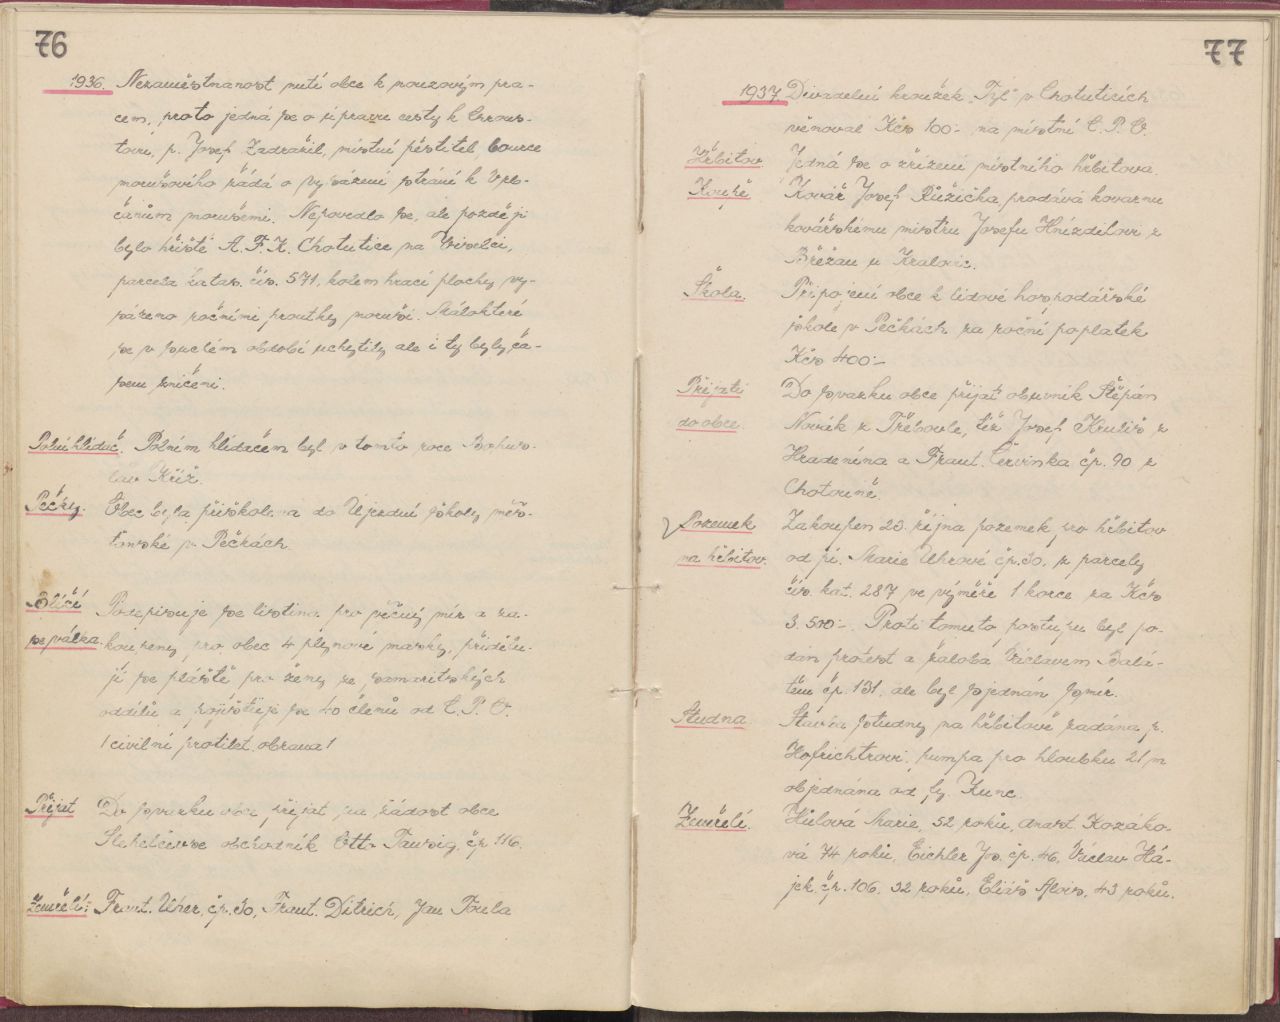 76
1936. Nezaměstnanost nutí obce k nouzovým pra-
cem, proto jedná se o úpravu cesty k Chrous-
tovu, p. Josef Zadražil, místní pěstitel bource
morušového žádá o vysázení strání k Vrb-
čanům morušemi. Nepovedlo se, ale později
bylo hřiště A.F.K. Chotutice na Viselci,
parcela katas. čís. 571, kolem hrací plochy vy-
sázeno ročními proutky moruší. Málokteré
se v suchém období uchytily ale i ty byly, ča-
sem zničeni.
Polní hlídač. Polním hlídačem byl v tomto roce Bohus-
lav Kříž.
Pečky. Obec byla přiškolena do Újezdní školy měš-
tanské v Pečkách.
Blíží Podepisuje se listina pro věčný mír a za-
se válka. koupeny pro obec 4 plynové masky, přidělu-
jí se pláště pro ženy ze samaritských
oddílů a zajišťuje se 40 členů od C.P.O.
/civilní protilet. obrana/
Přijat Do svazku obce přijat, na žádost obce
obchodník Otto Taussig, čp. 116.
Zemřeli: Frant. Uher, čp. 30, Frant. Ditrich, Jan
77
1937. Divadelní kroužek "Tyl" v Chotuticích
věnoval Kčs 100.- na místní C.P.O.
Hřbitov. Jedná se o zřízení místního hřbitova.
Koupě Kovář Josef Růžička prodává kovarnu
kovářskému mistru Josefu Hnízdilovi z
Břežan u Kralovic.
Škola. Připojení obce k lidové hospodářské
škole v Pečkách za roční poplatek
Kčs 400.-
Přijati Do svazku obce přijat obuvník Štěpán
do obce. Novák z Třebovle, též Josef Kruliš z
Hradenína a Frant. Červinka čp. 90 z
Chotouně.
Pozemek Zakoupen 20. října pozemek pro hřbitov
na hřbitov. od pí. Marie Uhrové čp. 30. z parcely
čís. kat. 287 ve výměře 1 korce za Kčs
3 500.- Proti tomuto postupu byl po-
dán protest a žaloba Václavem Balá-
těm čp. 131. ale byl sjednán smír.
Studna Stavba studny na hřbitově zadána p.
Hofrichtrovi, pumpa pro hloubku 21 m
objednána od fy. Kunc.
Zemřelí. Hůlová Marie, 52 roků, Anast. Kozáko-
vá 74 roků, Eichler Jos. čp. 46, Václav Há-
jek čp. 106. 32 roků, Eliáš Alois, 43 roků.